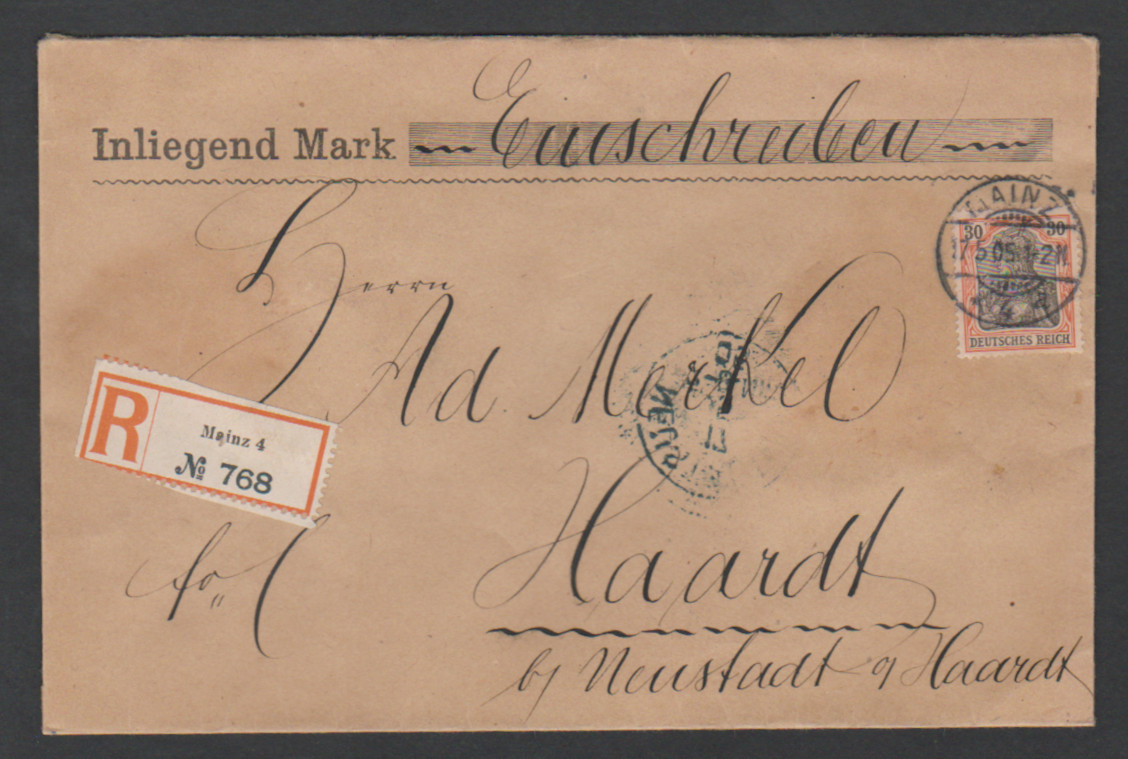 Inliegend Mark Einschreiben
MAINZ
17.5.05.1-2N
4
30 30
DEUTSCHES REICH
Herrn
Ad. Merkel
R
Mainz 4
№ 768
Haardt
fo
b/ Neustadt a/Haardt